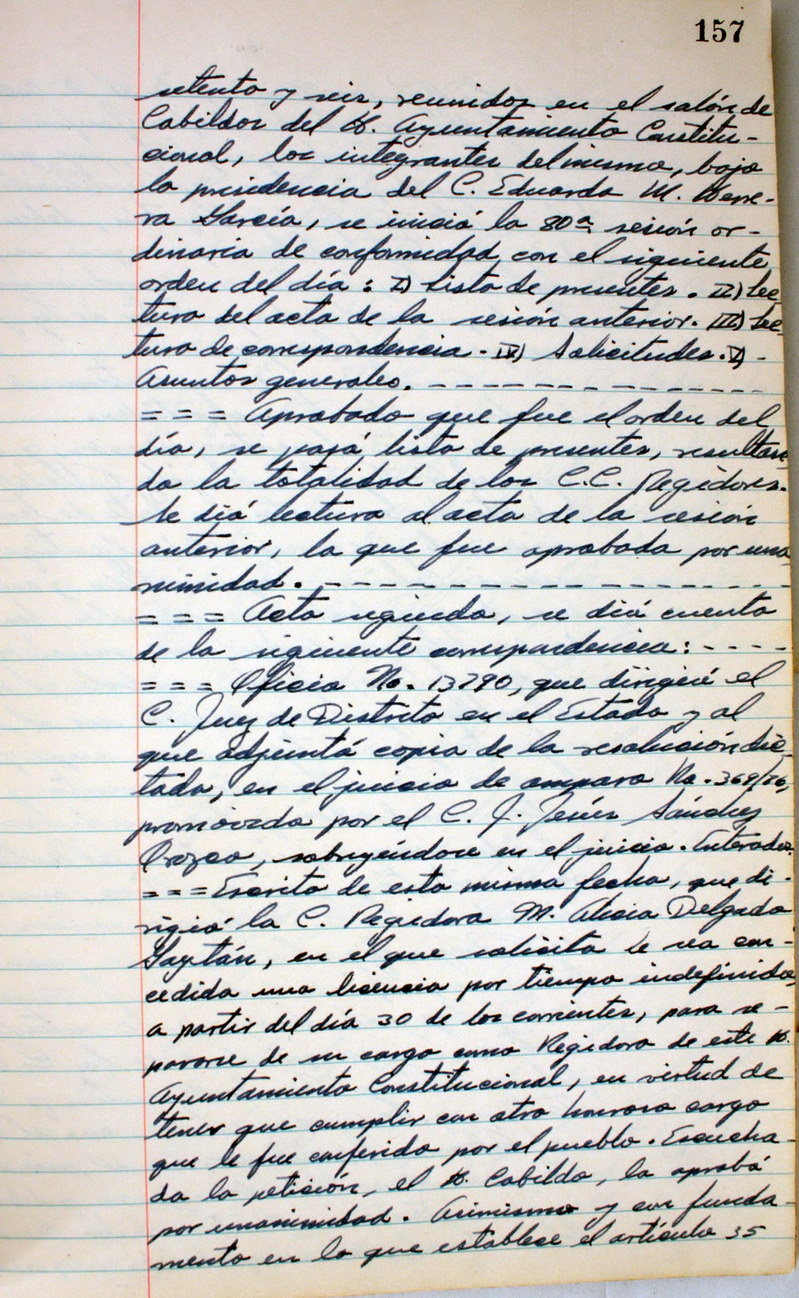 157
setenta y seis, reunidos en el salón de
Cabildos del H. Ayuntamiento Constitu-
cional, los integrantes del mismo, bajo
la presidencia del C. Eduardo M. Herre-
ra García, se inició la 80a sesión or-
dinaria de conformidad con el siguiente
orden del día: I) Lista de presentes. II) Lec-
tura del acta de la sesión anterior. III) Lec-
tura de correspondencia. IV) Solicitudes. V) -
Asuntos generales. - - - - - - - - - - - - - -
= = = Aprobado que fue el orden del
día, se pasó lista de presentes, resultan-
do la totalidad de los C.C. Regidores.
Se dió lectura al acta de la sesión
anterior, la que fue aprobada por una
nimidad. - - - - - - - - - - - - - - - - - -
= = = Acto seguido, se dió cuenta
de la siguiente correspondencia: - - - -
= = = Oficio No. 13790, que dirigió el
C. Juez de Distrito en el Estado y al
que adjuntó copia de la resolución dic-
tada, en el juicio de amparo No. 369/76,
promovido por el C. J. Jesús Sánchez
Orozco, sobreyéndose en el juicio. Enterados.
= = = Escrito de esta misma fecha, que di-
rigió la C. Regidora M. Alicia Delgado
Gaytán, en el que solicita le sea con-
cedida una licencia por tiempo indefinido,
a partir del día 30 de los corrientes, para se-
pararse de su cargo como Regidora de este H.
Ayuntamiento Constitucional, en virtud de
tener que cumplir con otro honroso cargo
que le fue conferido por el pueblo. Escucha-
da la petición, el H. Cabildo, la aprobó
por unanimidad. Asimismo y con funda-
mento en lo que establece el artículo 35